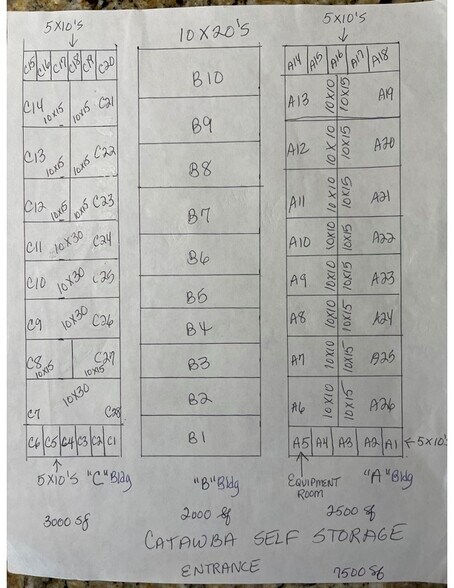 5X10'S
10X20'S
5X10'S
C15 C16 C17 C18 C19 C20
C14 10X15 10X15 C21
C13 10X15 10X15 C22
C12 10X15 10X15 C23
C11 10X30 C24
C10 10X30 C25
C9 10X30 C26
C8 10X15 10X15 C27
C7 10X30 C28
C6 C5 C4 C3 C2 C1
5X10'S "C" Bldg
3000 sf
B10
B9
B8
B7
B6
B5
B4
B3
B2
B1
"B" Bldg
2000 sf
A14 A15 A16 A17 A18
A13 10X10 10X15 A19
A12 10X10 10X15 A20
A11 10X10 10X15 A21
A10 10X10 10X15 A22
A9 10X10 10X15 A23
A8 10X10 10X15 A24
A7 10X10 10X15 A25
A6 10X10 10X15 A26
A5 A4 A3 A2 A1 5X10's
EQUIPMENT
ROOM
"A" Bldg
2500 sf
CATAWBA SELF STORAGE
ENTRANCE
7500 sf